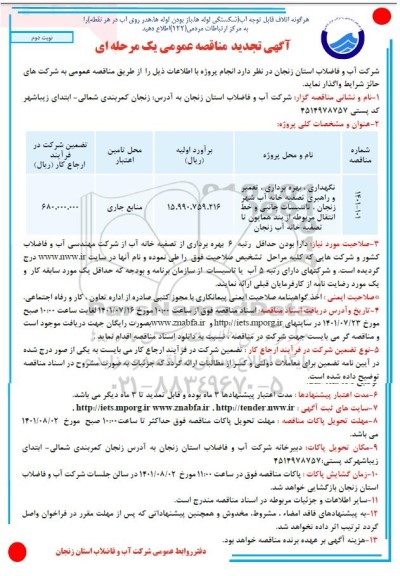 هرگونه اتلاف قابل توجه آب(شکستگی لوله ها،باز بودن لوله ها،هدر روی آب در هر نقطه)را
به مرکز ارتباطات مردمی(۱۲۲)اطلاع دهید
نوبت دوم
آگهی تجدید مناقصه عمومی یک مرحله ای
شرکت آب و فاضلاب استان زنجان در نظر دارد انجام پروژه با اطلاعات ذیل را از طریق مناقصه عمومی به شرکت های
حائز شرایط واگذار نماید.
۱-نام و نشانی مناقصه گزار: شرکت آب و فاضلاب استان زنجان به آدرس: زنجان کمربندی شمالی- ابتدای زیباشهر
کد پستی ۴۵۱۴۹۷۸۷۵۷
۲-عنوان و مشخصات کلی پروژه:
شماره مناقصه
نام و محل پروژه
برآورد اولیه (ریال)
محل تامین اعتبار
تضمین شرکت در فرآیند ارجاع کار (ریال)
نگهداری ، بهره برداری ، تعمیر
و راهبری تصفیه خانه آب شهر
زنجان ، تاسیسات جانبی و خط
انتقال مربوطه از بند همایون تا
تصفیه خانه آب زنجان
۱۵،۹۹۰،۷۵۹،۲۱۶
منابع جاری
۶۸۰،۰۰۰،۰۰۰
۳-صلاحیت مورد نیاز: دارا بودن حداقل رتبه ۶ بهره برداری از تصفیه خانه آب از شرکت مهندسی آب و فاضلاب
کشور و شرکت هایی که کلیه مراحل تشخیص صلاحیت فوق را طی نموده و نام آنها در سایت www.nww.ir درج
گردیده است. و شرکتهای دارای رتبه ۵ آب یا تاسیسات از سازمان برنامه و بودجه که حداقل یک مورد سابقه کار و
یک مورد رضایت نامه از کارفرمایان قبلی ارائه نمایند.
*صلاحیت ایمنی : اخذ گواهینامه صلاحیت ایمنی پیمانکاری یا مجوز کتبی صادره از اداره تعاون ،کار و رفاه اجتماعی.
۴-تاریخ وآدرس دریافت اسناد مناقصه: اسناد مناقصه فوق از ساعت ۱۰:۰۰ مورخ ۱۴۰۱/۰۷/۱۶ لغایت ساعت ۱۰:۰۰ صبح
مورخ ۱۴۰۱/۰۷/۲۳ در سایتهای http://iets.mporg.ir و www.znabfa.ir بصورت رایگان جهت دریافت موجود است
و مناقصه گر می بایست جهت شرکت در مناقصه ، نسبت به دانلود اسناد مناقصه اقدام نماید .
۵-نوع تضمین شرکت در فرآیند ارجاع کار : تضمین شرکت در فرآیند ارجاع کار می بایست به یکی از صور درج شده
در آیین نامه تضمین برای معاملات دولتی و کسر از مطالبات ارائه گردد که جزئیات به صورت مشروح در اسناد مناقصه
توضیح داده شده است.
۰۲۱-۸۸۳۴۹۶۷۰-۵
۶-مدت اعتبار پیشنهادها : مدت اعتبار پیشنهادها ۳ ماه بوده و قابل تمدید تا ۳ ماه دیگر می باشد.
۷-سایت های ثبت آگهی : http://iets.mporg.ir www.znabfa.ir , http://tender.nww.ir ,
۸-مهلت تحویل پاکات مناقصه : مهلت تحویل پاکات مناقصه فوق حداکثر تا ساعت ۱۰:۰۰ صبح مورخ ۱۴۰۱/۰۸/۰۲
می باشد.
۹-مکان تحویل پاکات: دبیرخانه شرکت آب و فاضلاب استان زنجان به آدرس زنجان کمربندی شمالی- ابتدای
زیباشهرکد پستی:۴۵۱۴۹۷۸۷۵۷
۱۰-زمان گشایش پاکات : پاکات مناقصه فوق در ساعت ۱۱:۰۰ مورخ ۱۴۰۱/۰۸/۰۲ در سالن جلسات شرکت آب و فاضلاب
استان زنجان بازگشایی خواهد شد.
۱۱-سایر اطلاعات و جزئیات مربوطه در اسناد مناقصه مندرج است.
۱۲-به پیشنهادهای فاقد امضاء ، مشروط، مخدوش و همچنین پیشنهاداتی که پس از مهلت مقرر در فراخوان واصل
گردد ترتیب اثر داده نخواهد شد.
۱۳-هزینه آگهی بر عهده برنده مناقصه خواهد بود.
دفتر روابط عمومی شرکت آب و فاضلاب استان زنجان